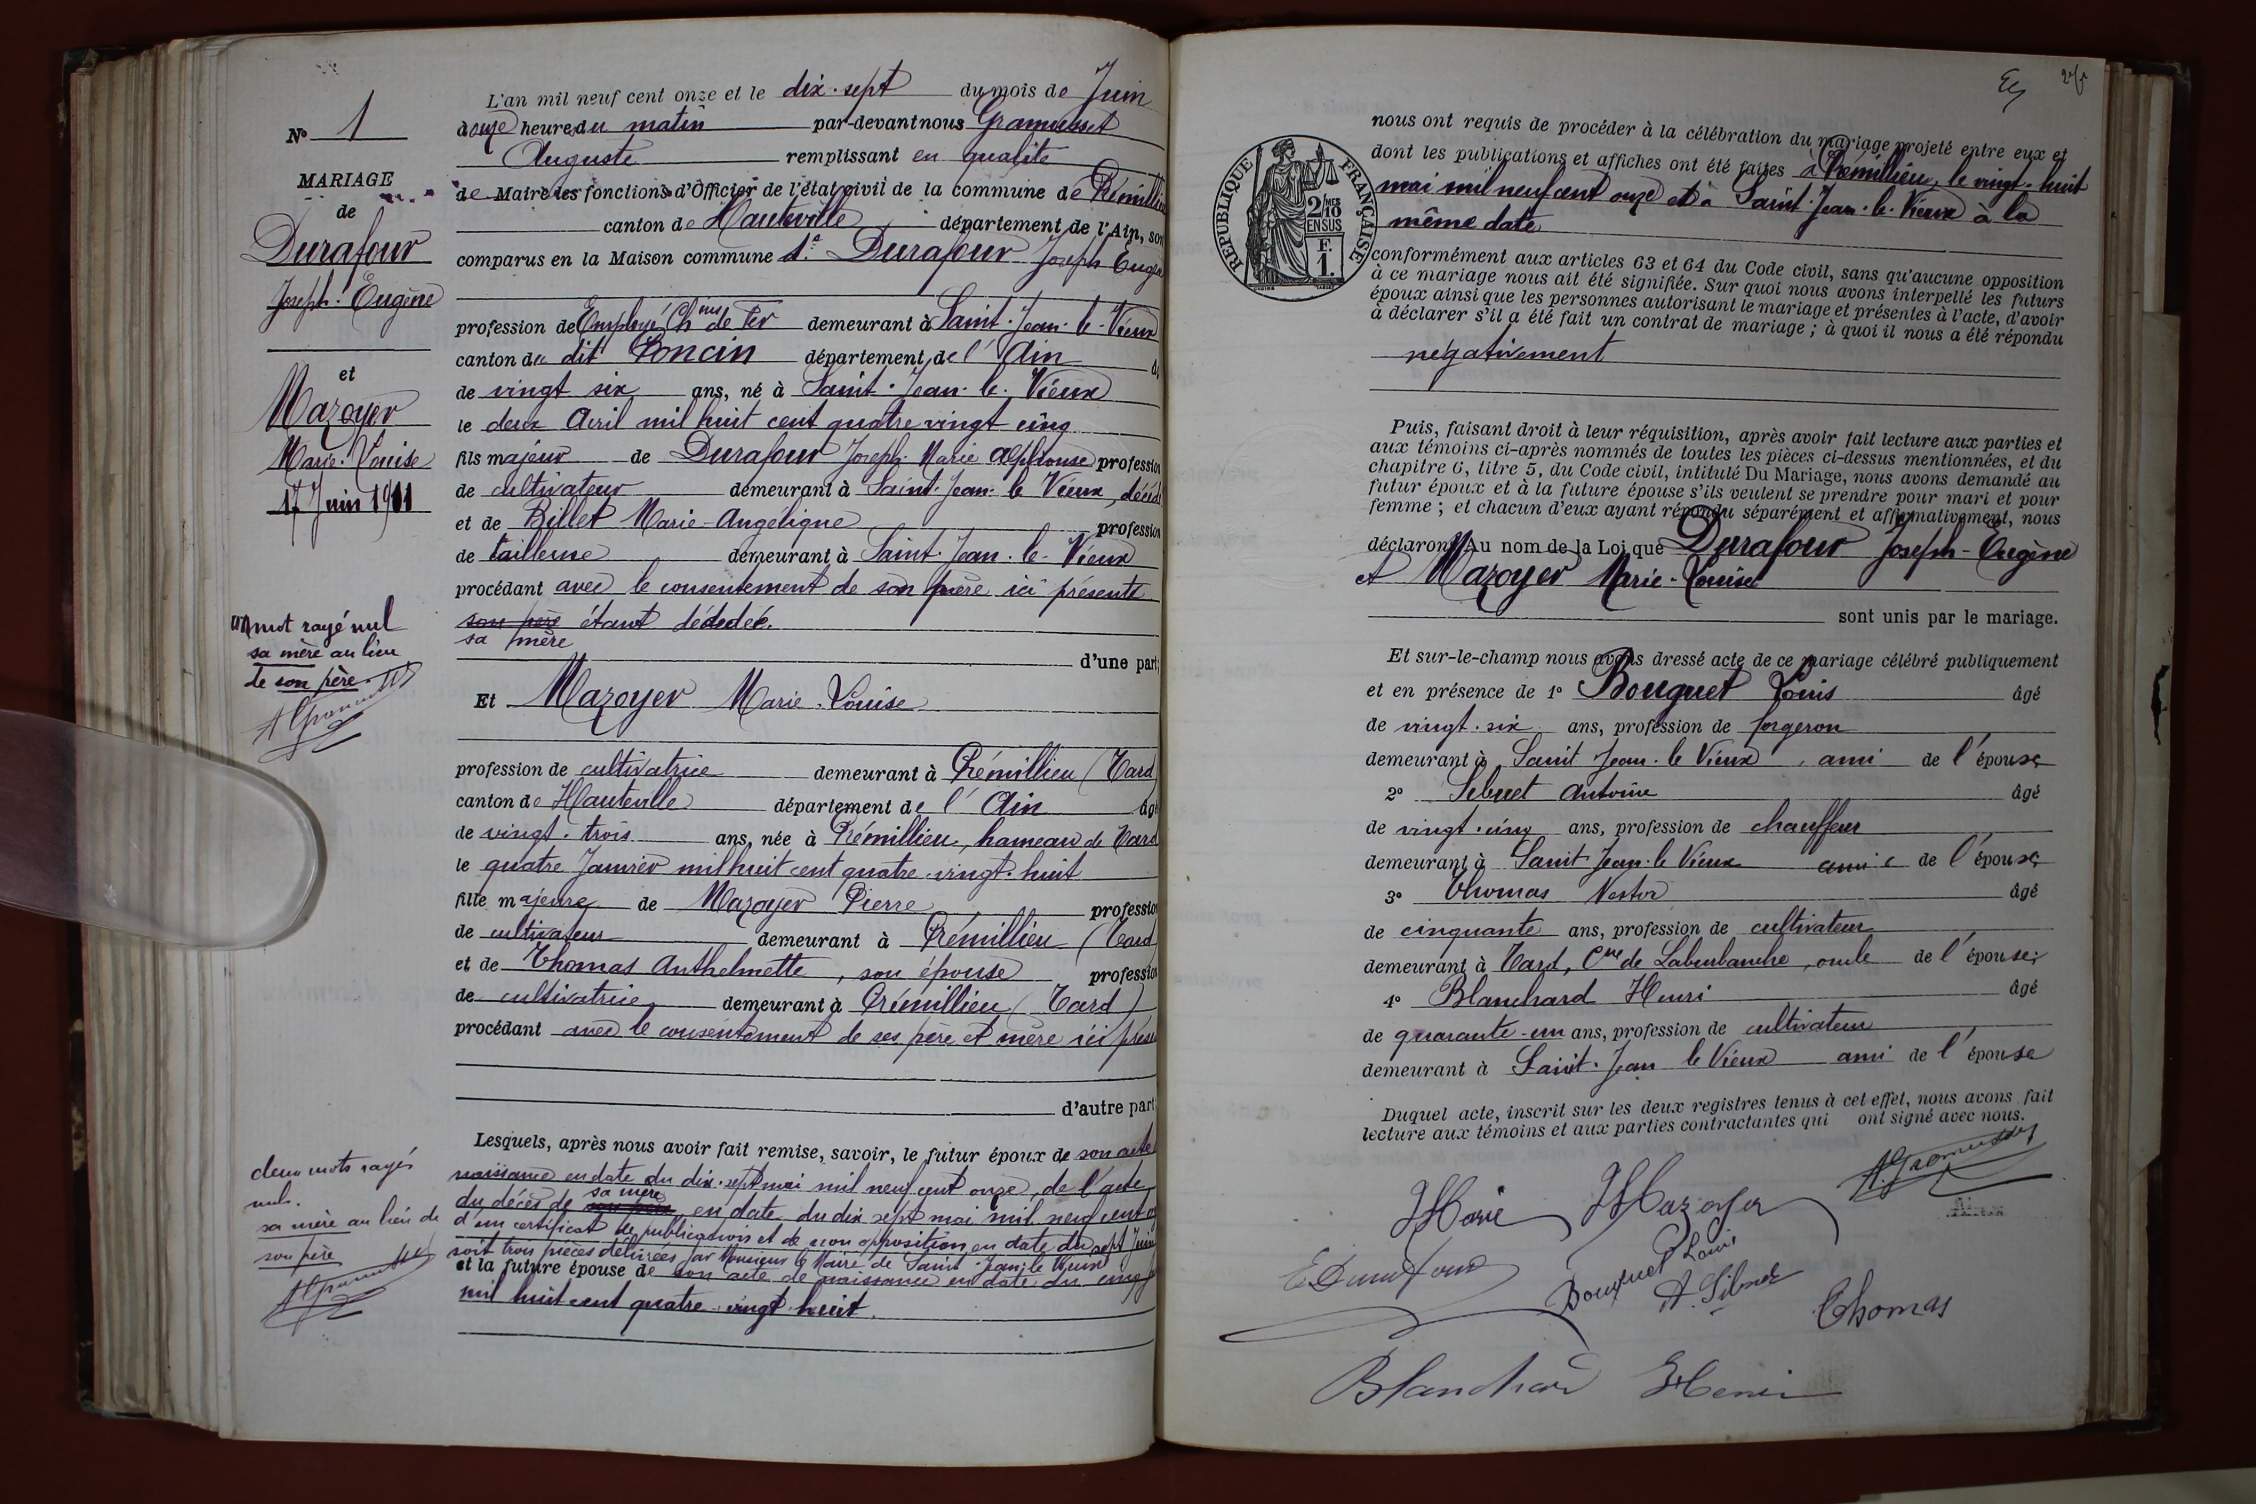 N° 1
MARIAGE
de
Durafour
Joseph-Eugène
et
Mazoyer
Marie-Louise
17 Juin 1911
mot rayé nul
sa mère au lieu
de son père
deux mots rayés
nuls.
sa mère au lieu de
son père
L'an mil neuf cent onze et le dix-sept du mois de Juin
à onze heures du matin par-devant nous
Auguste remplissant en qualité
de Maire les fonctions d'Officier de l'état civil de la commune de Prémillieu
canton de Hauteville département de l'Ain, son
comparus en la Maison commune 1° Durafour Joseph Eugè
profession de Employé Ch ins de Fer demeurant à Saint-Jean-le-Vieux
canton du dit Poncin département de l'Ain
de vingt six ans, né à Saint-Jean-le-Vieux
le deux Avril mil huit cent quatre vingt cinq
fils majeur de Durafour Joseph-Marie Alphonse profession
de cultivateur demeurant à Saint-Jean-le Vieux, décéd
et de Billet Marie-Angélique profession
de tailleuse demeurant à Saint-Jean-le-Vieux
procédant avec le consentement de son père ici présente
son père étant dédédée.
sa mère
d'une part;
Et Mazoyer Marie-Louise
profession de cultivatrice demeurant à Prémillieu (Tard)
canton de Hauteville département de l'Ain âgé
de vingt-trois ans, née à Prémillieu, hameau de Tard
le quatre Janvier mil huit cent quatre-vingt-huit
fille majeure de Mazoyer Pierre profession
de cultivateur demeurant à Prémillieu (Tard
et de Thomas Anthelmette, son épouse profession
de cultivatrice demeurant à Prémillieu (Tard)
procédant avec le consentement de ses père et mère ici prése
d'autre part
Lesquels, après nous avoir fait remise, savoir, le futur époux de son acte
naissance en date du dix-sept mai mil neuf cent onze, de l'acte
du décès de sa mère en date du dix sept mai mil neuf cent o
d'un certificat de publications et de non opposition en date du sept Juin
soit trois pièces délivrées par Monsieur le Maire de Saint-Jean-le Vieux
et la future épouse de son acte de naissance en date du cinq
mil huit cent quatre-vingt-huit.
RÉPUBLIQUE FRANÇAISE
2/10 EN SUS
F. 1.
nous ont requis de procéder à la célébration du mariage projeté entre eux et
dont les publications et affiches ont été faites à Prémillieu, le vingt-huit
mai mil neuf cent onze et à Saint-Jean-le-Vieux à la
même date
conformément aux articles 63 et 64 du Code civil, sans qu'aucune opposition
à ce mariage nous ait été signifiée. Sur quoi nous avons interpellé les futurs
époux ainsi que les personnes autorisant le mariage et présentes à l'acte, d'avoir
à déclarer s'il a été fait un contrat de mariage ; à quoi il nous a été répondu
négativement
Puis, faisant droit à leur réquisition, après avoir fait lecture aux parties et
aux témoins ci-après nommés de toutes les pièces ci-dessus mentionnées, et du
chapitre 6, titre 5, du Code civil, intitulé Du Mariage, nous avons demandé au
futur époux et à la future épouse s'ils veulent se prendre pour mari et pour
femme ; et chacun d'eux ayant répondu séparément et affirmativement, nous
déclarons Au nom de la Loi que Durafour Joseph-Eugène
et Mazoyer Marie-Louise
sont unis par le mariage.
Et sur-le-champ nous avons dressé acte de ce mariage célébré publiquement
et en présence de 1° Bouquet Louis âgé
de vingt-six ans, profession de forgeron
demeurant à Saint Jean-le Vieux, ami de l'épouse
2° Sibuet Antoine âgé
de vingt-cinq ans, profession de chauffeur
demeurant à Saint Jean-le Vieux ami de l'épouse
3° Thomas Nestor âgé
de cinquante ans, profession de cultivateur
demeurant à Tard, Cne de Laburbanche, oncle de l'épouse
4° Blanchard Henri âgé
de quarante-un ans, profession de cultivateur
demeurant à Saint-Jean le Vieux ami de l'épouse
Duquel acte, inscrit sur les deux registres tenus à cet effet, nous avons fait
lecture aux témoins et aux parties contractantes qui ont signé avec nous.
Marie Mazoyer
Bouquet Louis
A. Sibuet
Thomas
Blanchard Henri